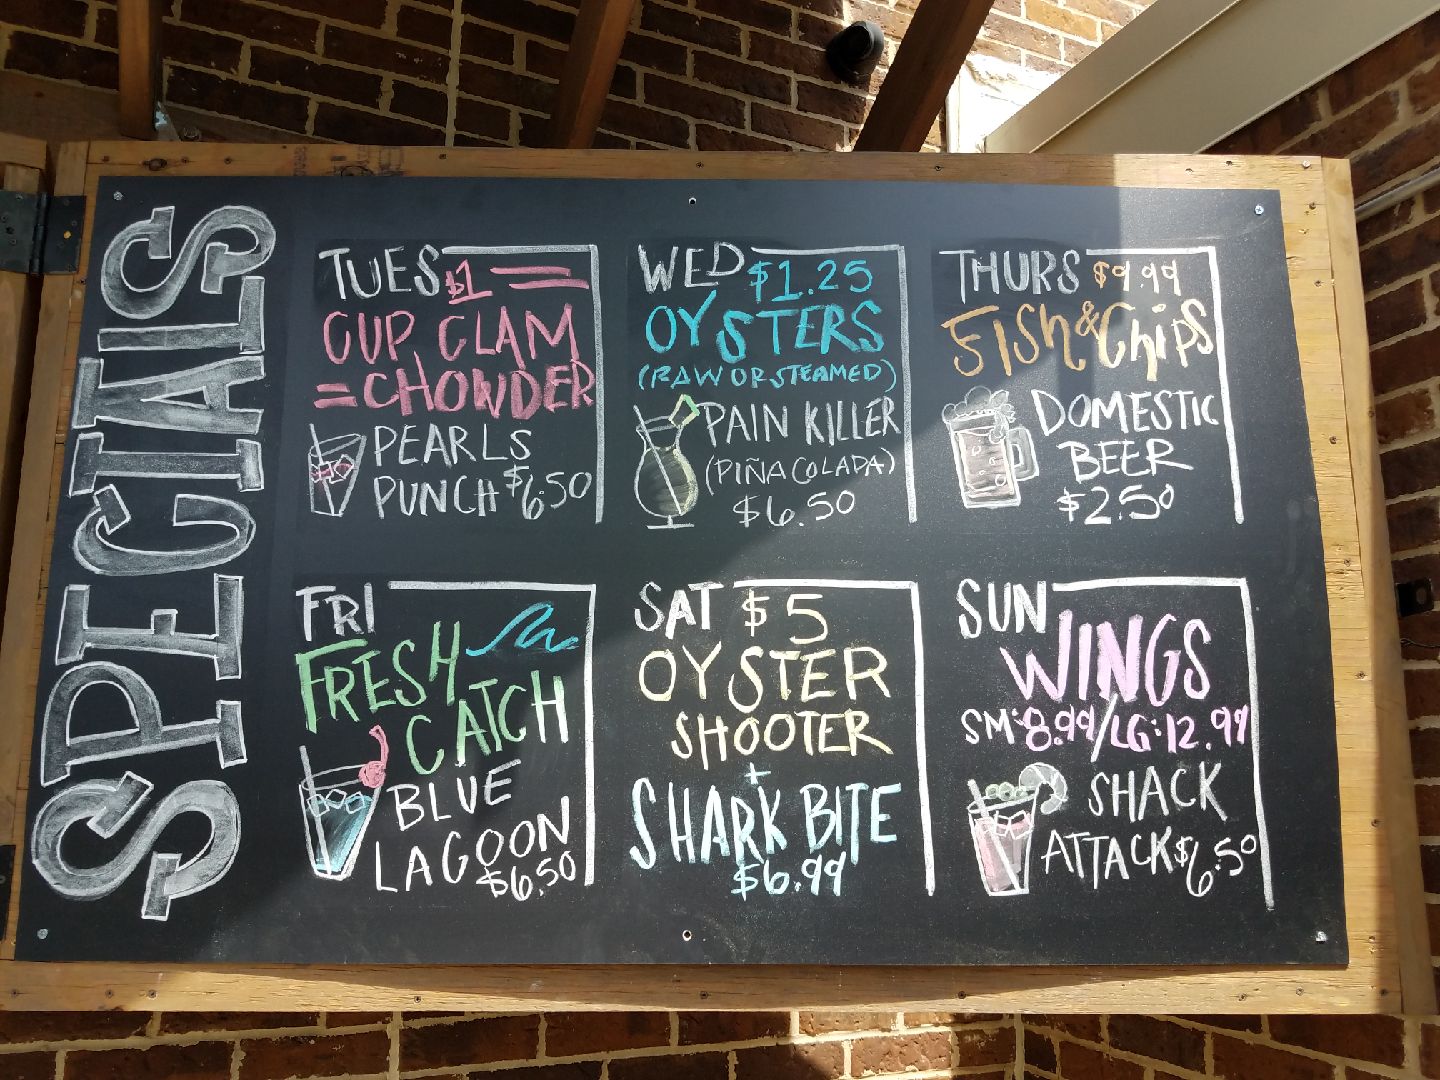 SPECIALS
TUES $1
CUP CLAM
CHOWDER
PEARLS
PUNCH $6.50
WED $1.25
OYSTERS
(RAW OR STEAMED)
PAIN KILLER
(PIÑA COLADA)
$6.50
THURS $9.99
FISh & ChiPS
DOMESTIC
BEER
$2.50
FRI
FRESH
CATCH
BLUE
LAGOON
$6.50
SAT $5
OYSTER
SHOOTER
+
SHARK BITE
$6.99
SUN
WINGS
SM:8.99/LG:12.99
SHACK
ATTACK $6.50